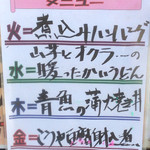 メニュー
火=煮込ハンバーグ
山芋とオクラ…の
水=暖ったかいうどん
木=青魚の蒲焼丼
金=とりやさい